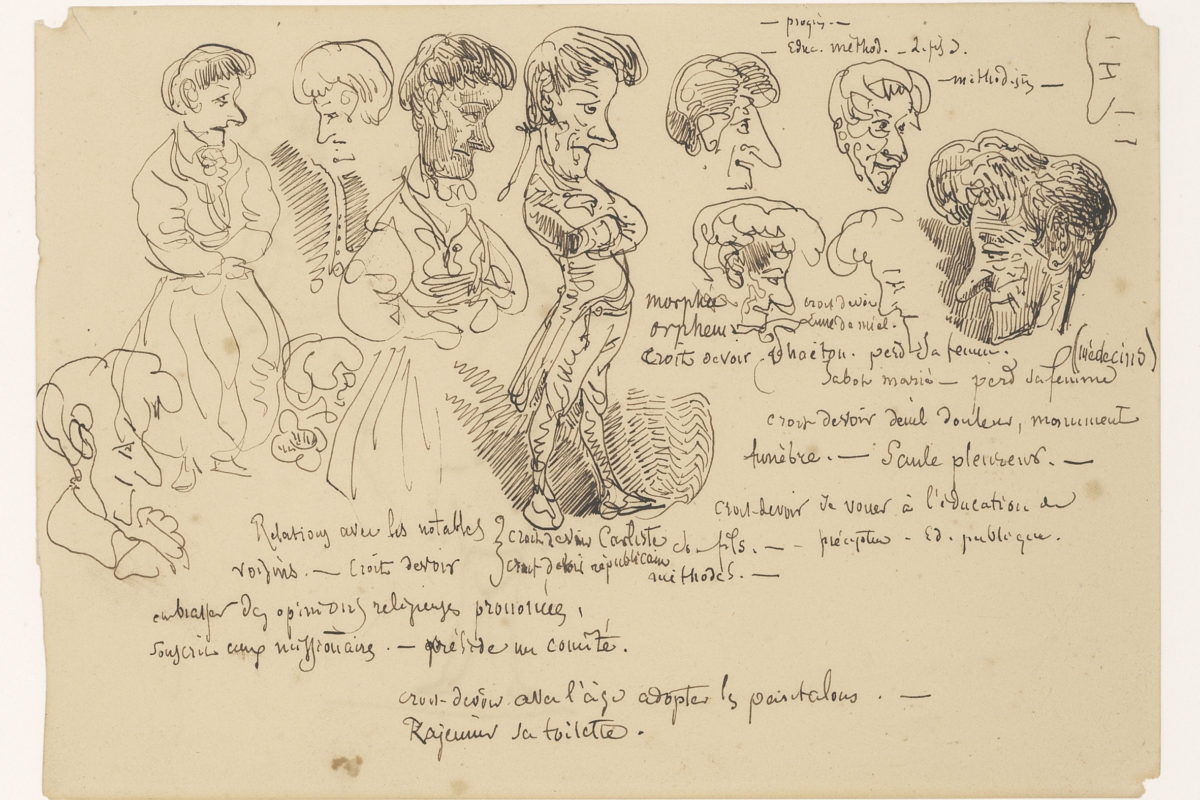 — progrès. —
— Educ. méthod. — 2 fils
— méthodistes —
H
morphée
orphée
croit devoir
lune de miel.
Croit devoir phaéton. perd sa femme.
(médecins)
Sabot marié — perd sa femme
croit devoir deuil douleur, monument
funèbre. — Saule pleureur. —
croit-devoir se vouer à l'éducation de
ch fils. — — précepteur - Ed. publique.
méthodes. —
Relations avec les notables
voisins. — Croit devoir
croit devoir Carliste
croit devoir républicain
embrasser des opinions religieuses prononcées,
souscrit aux missionaires. — préside un comité.
croit-devoir avec l'âge adopter les pantalons. —
Rajeunir sa toilette.